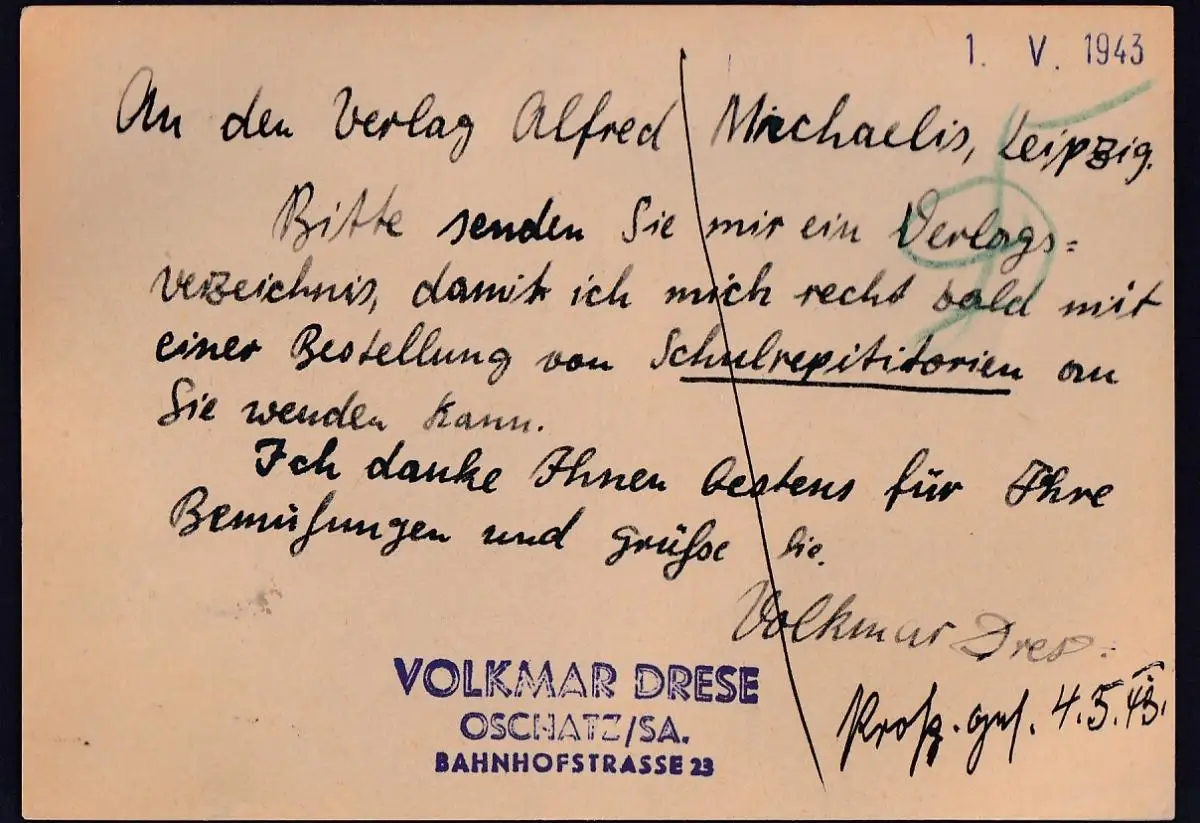 1. V. 1943
An den Verlag Alfred Michaelis, Leipzig.
Bitte senden Sie mir ein Verlags=
verzeichnis, damit ich mich recht bald mit
einer Bestellung von Schulrepititorien an
Sie wenden kann.
Ich danke Ihnen bestens für Ihre
Bemühungen und grüße Sie.
Volkmar Drese
VOLKMAR DRESE
OSCHATZ/SA.
BAHNHOFSTRASSE 23
4.5.43.